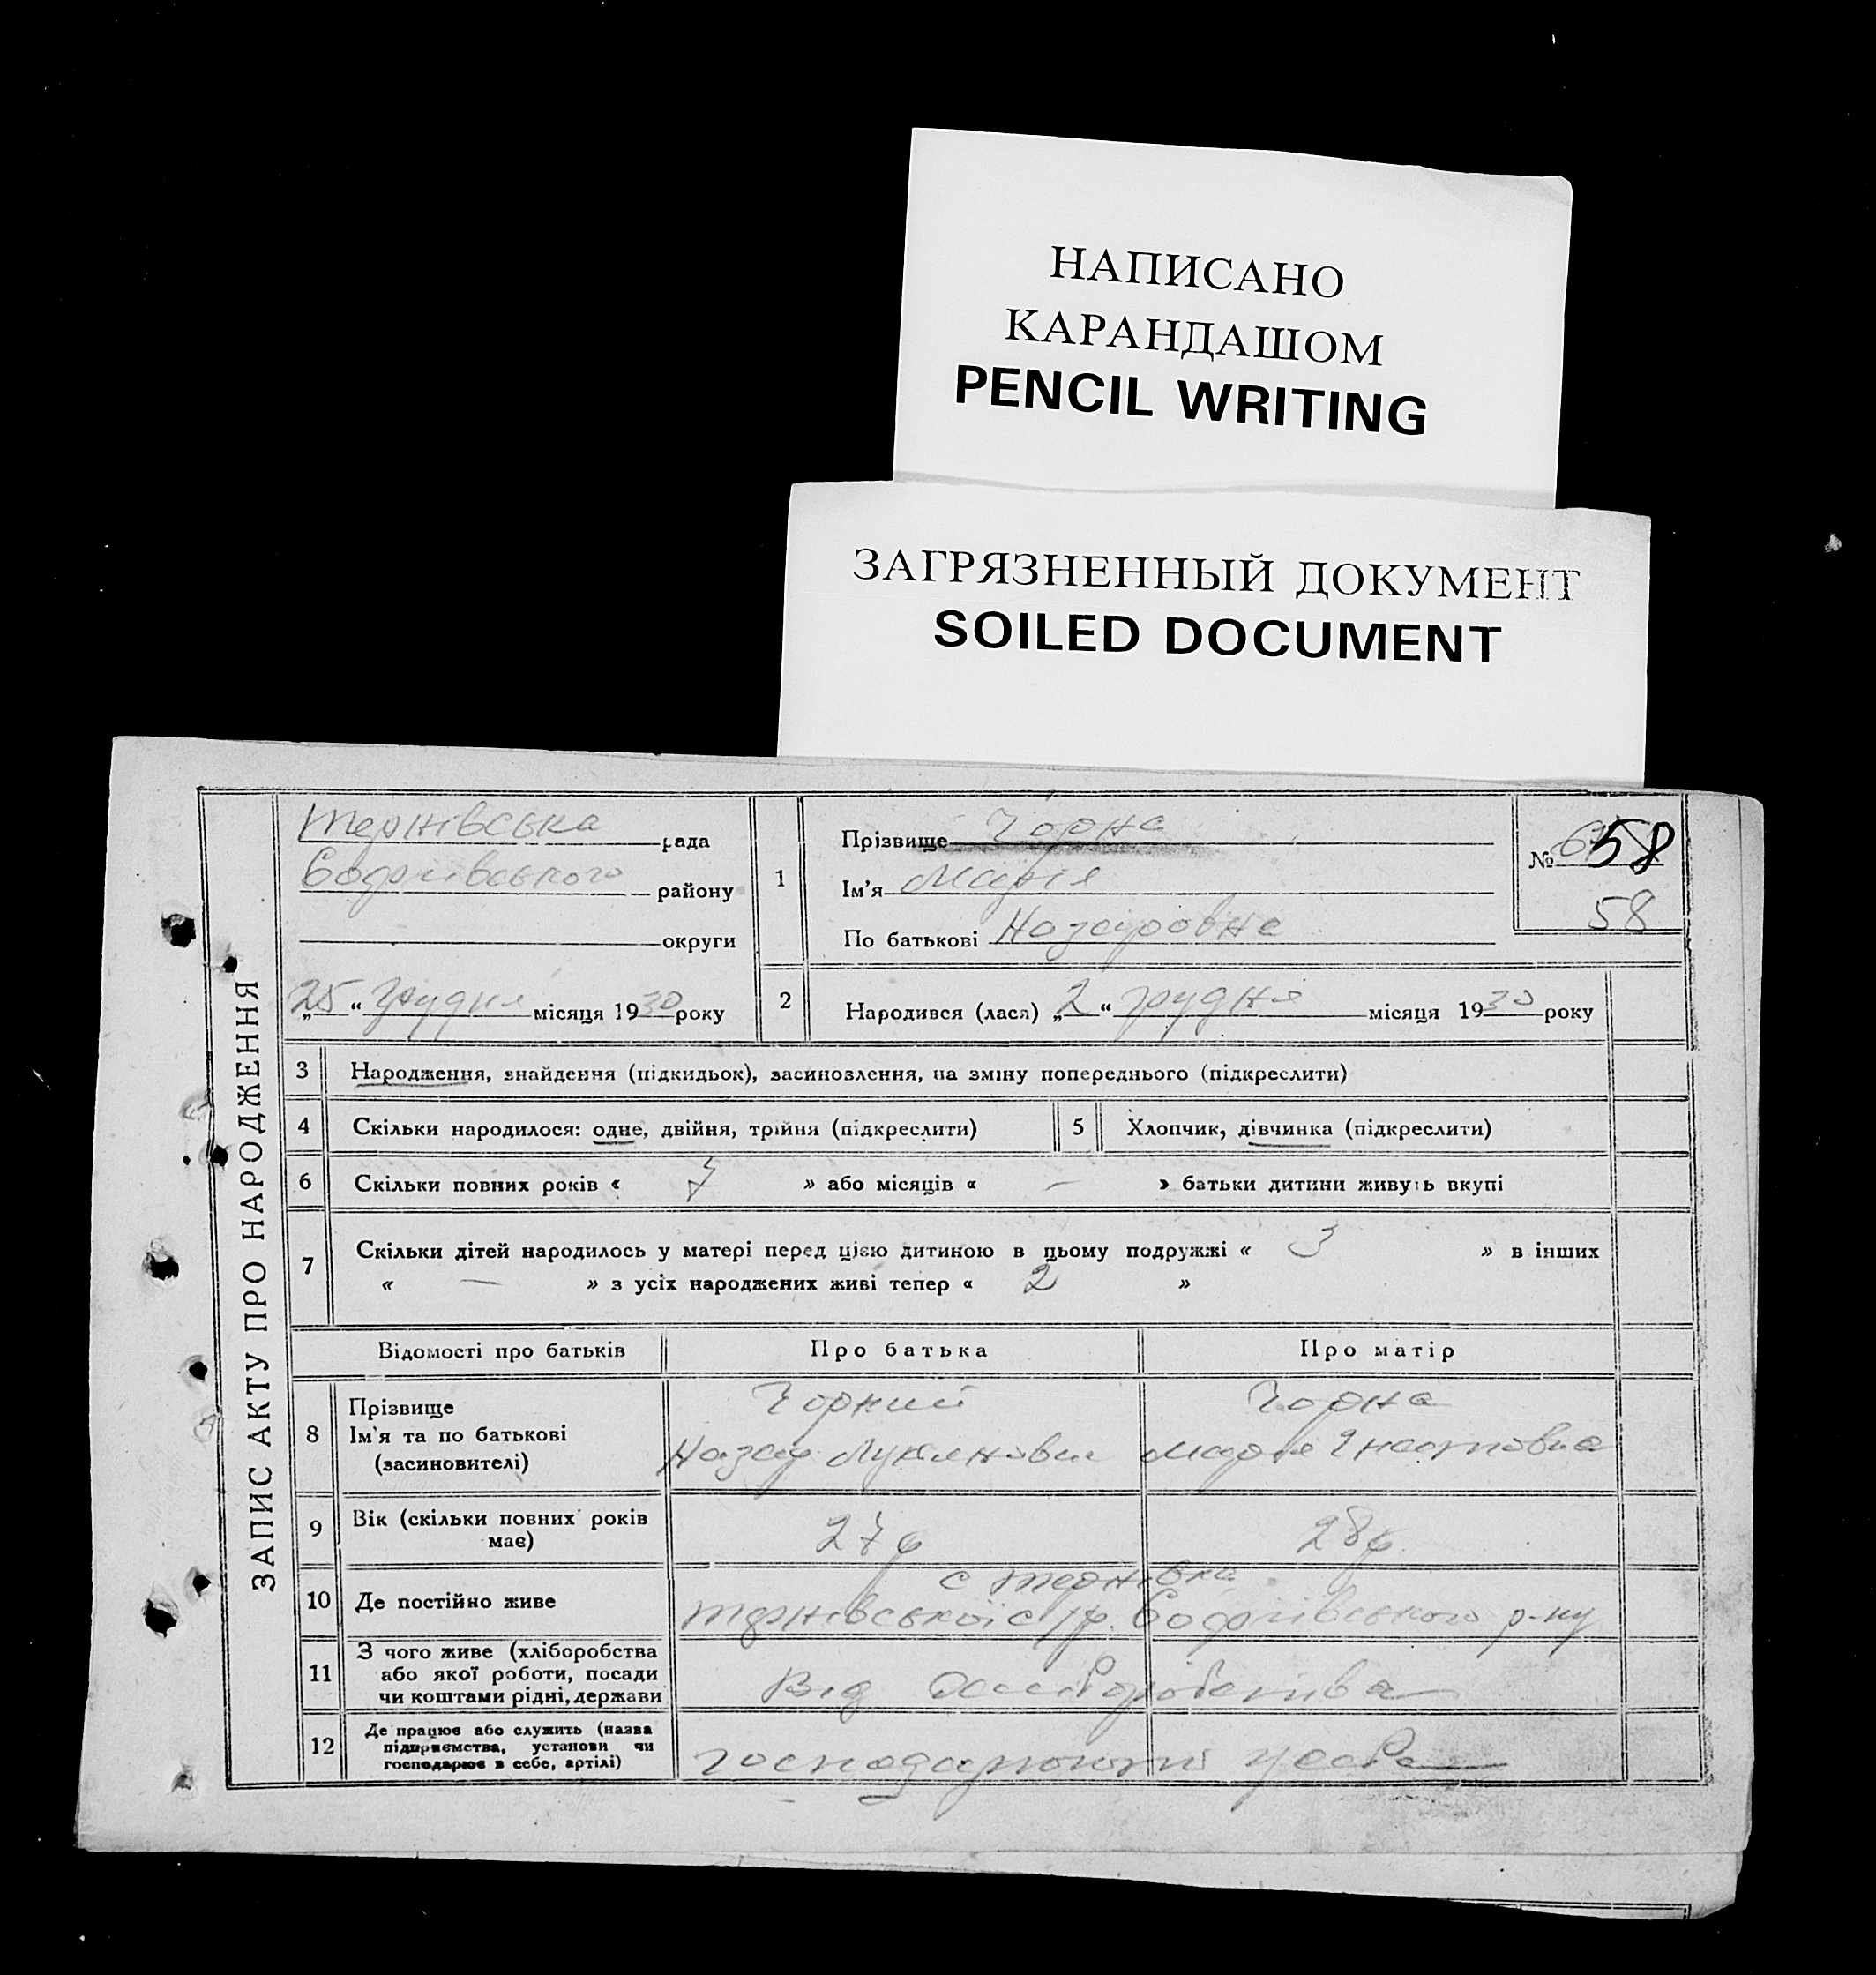 НАПИСАНО
КАРАНДАШОМ
PENCIL WRITING
ЗАГРЯЗНЕННЫЙ ДОКУМЕНТ
SOILED DOCUMENT
ЗАПИС АКТУ ПРО НАРОДЖЕННЯ
Тернівська рада
району
округи
„25“ грудня місяця 1930 року
1
Прізвище Чорна
Ім'я Марія
По батькові Назаровна
№ 58
58
2
Народився (лася) „2“ грудня місяця 1930 року
3 Народження, знайдення (підкидьок), засиновлення, на зміну попереднього (підкреслити)
4 Скільки народилося: одне, двійня, трійня (підкреслити) 5 Хлопчик, дівчинка (підкреслити)
6 Скільки повних років « 7 » або місяців « — » батьки дитини живуть вкупі
7 Скільки дітей народилось у матері перед цією дитиною в цьому подружжі « 3 » в інших
« — » з усіх народжених живі тепер « 2 »
Відомості про батьків Про батька Про матір
8 Прізвище Чорний Чорна
Ім'я та по батькові Назар Лукянович Марія
(засиновителі)
9 Вік (скільки повних років має) 27 р 28 р.
с Тернівка
10 Де постійно живе Тернівської с/р. р-ну
11 З чого живе (хліборобства
або якої роботи, посади
чи коштами рідні, держави
Від хліборобства
12 Де працює або служить (назва
підприємства, установи чи
господарює в себе, артілі)
господарюють у себе